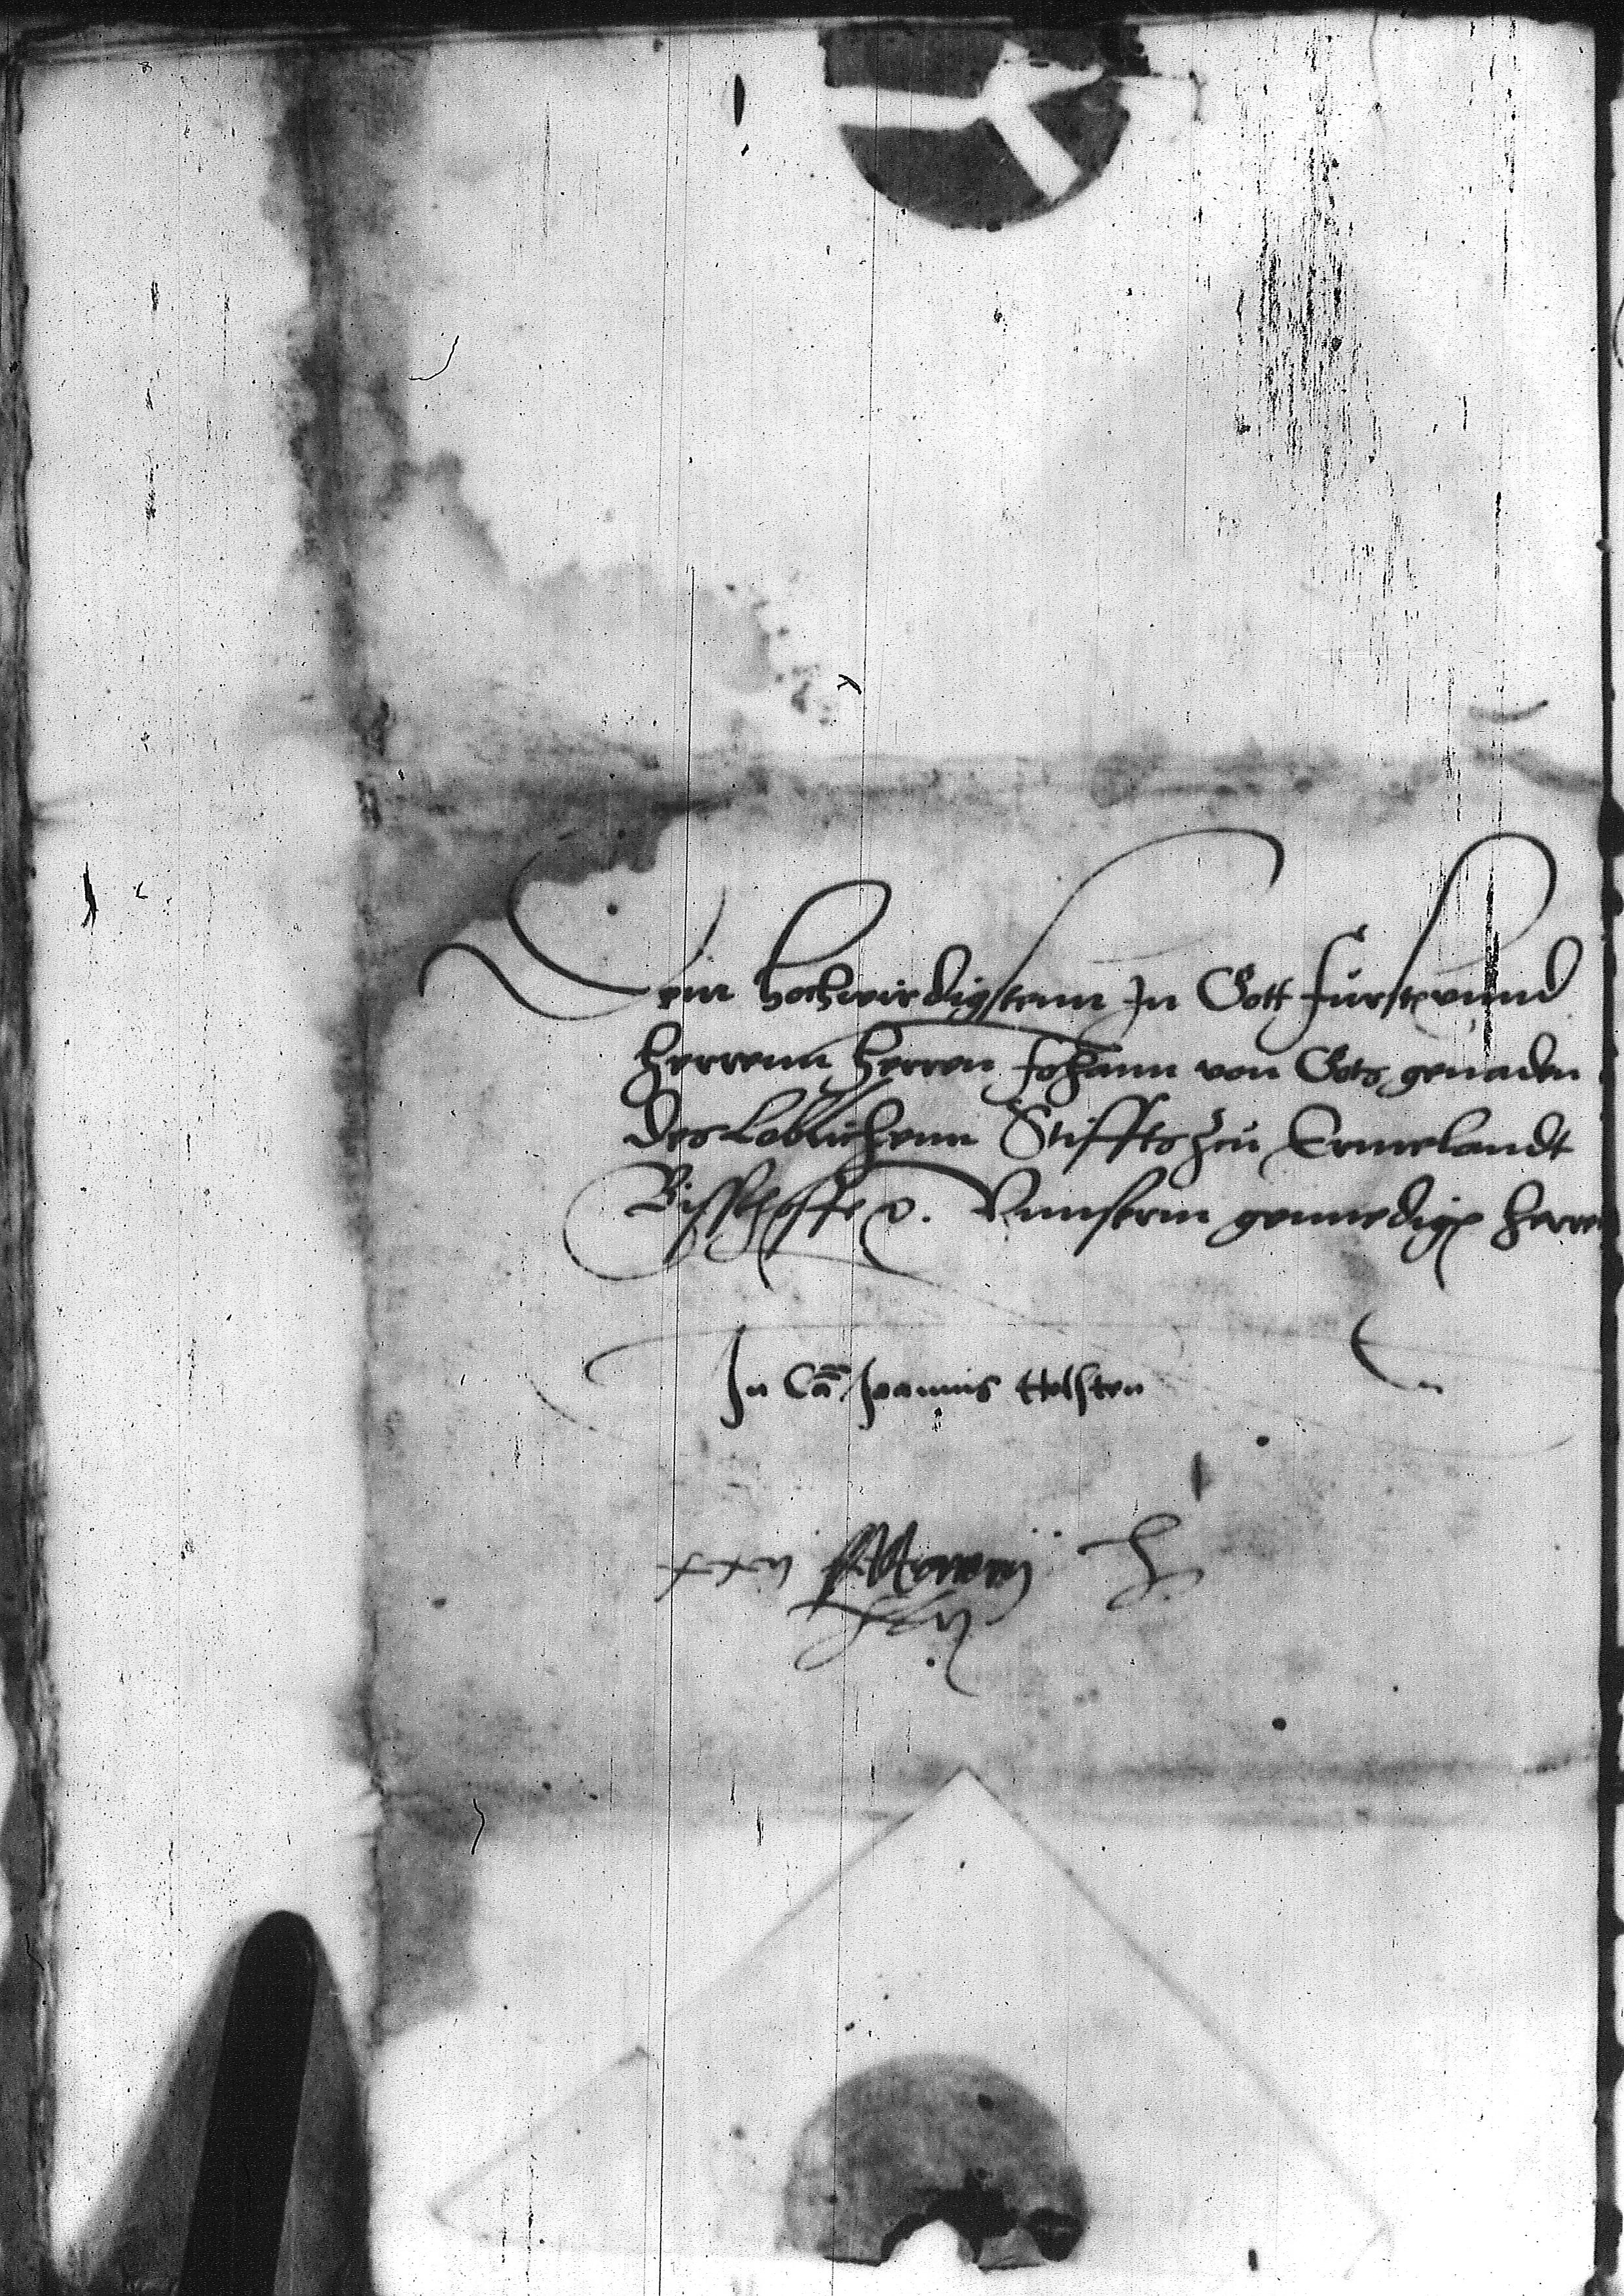 Dem hochwirdigstenn In Gott fürste vnnd
Herrenn Herren Johann von Gots genaden
des Loblichenn Stiffts zcu Ermelandt
Bisschoffe Vnnserm gennedige Herren
In Cã Joannis Holsten
xxvj Martij